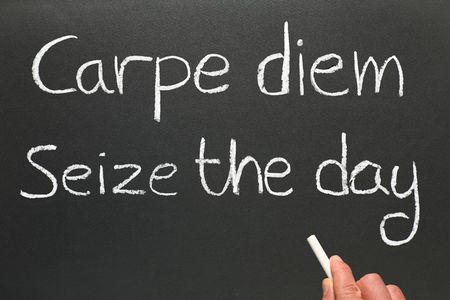 Carpe diem
Seize the day